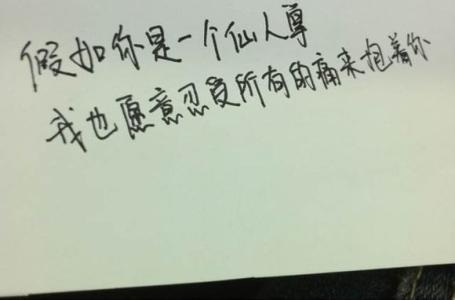 假如你是一个仙人尊
我也愿意忍受所有的痛来抱着你